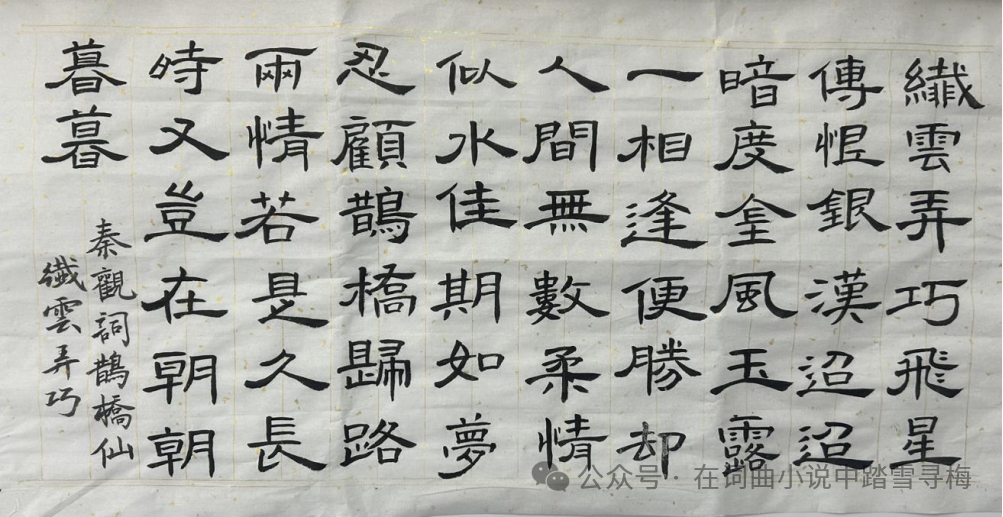 纖雲弄巧飛星
傳恨銀漢迢迢
暗度金風玉露
一相逢便勝却
人間無數柔情
似水佳期如夢
忍顧鵲橋歸路
兩情若是久長
時又豈在朝朝
暮暮
秦觀詞鵲橋仙
纖雲弄巧
公众号 · 在词曲小说中踏雪寻梅